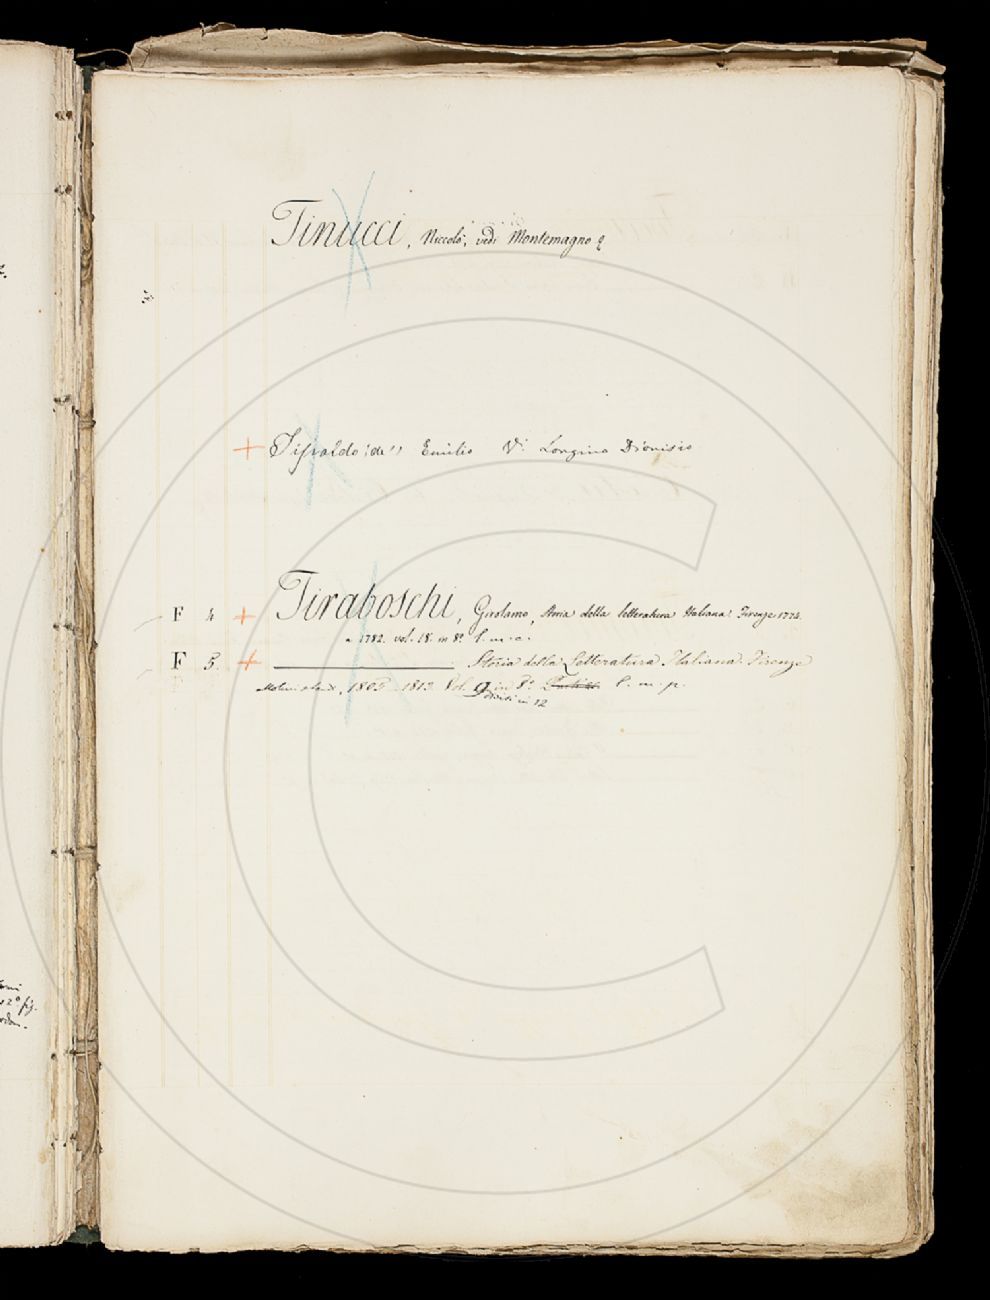 Tinucci, Niccolò, vedi Montemagno
+ Tipaldo (de') Emilio V. Longino Dionisio
F 4 + Tiraboschi, Girolamo, Storia della letteratura Italiana. Firenze 1774.
a 1782. vol. 18. in 8º l.m.c.
F 5. + Storia della Letteratura Italiana. Firenze
Molini Landi, 1805-1813. Vol. 9 in 8º l.m.p.
divisi in 12
12º fig.